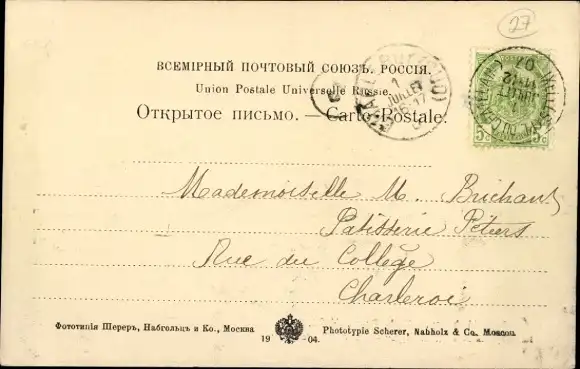 27
ВСЕМІРНЫЙ ПОЧТОВЫЙ СОЮЗЪ. РОССІЯ.
Union Postale Universelle Russie.
Открытое письмо. — Carte Postale.
5c 5c
JUILLET
Mademoiselle M. Brichaut
Patisserie Péters
Rue du Collège
Charleroi
Фототипія Шереръ, Набгольцъ и Ко., Москва
1904.
Phototypie Scherer, Nabholz & Co. Moscou.